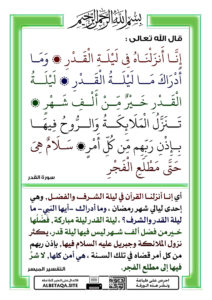 بسم الله الرحمن الرحيم
قال الله تعالى :
إِنَّا أَنزَلْنَاهُ فِي لَيْلَةِ الْقَدْرِ ۝ وَمَا
أَدْرَاكَ مَا لَيْلَةُ الْقَدْرِ ۝ لَيْلَةُ
الْقَدْرِ خَيْرٌ مِّنْ أَلْفِ شَهْرٍ ۝
تَنَزَّلُ الْمَلَائِكَةُ وَالرُّوحُ فِيهَا
بِإِذْنِ رَبِّهِم مِّن كُلِّ أَمْرٍ ۝ سَلَامٌ هِيَ
حَتَّى مَطْلَعِ الْفَجْرِ
سورة القدر
أي إنا أنزلنا القرآن في ليلة الشرف والفضل، وهي
إحدى ليالي شهر رمضان ، وما أدراك -أيها النبي - ما
ليلة القدر والشرف؟ ، ليلة القدر ليلة مباركة، فضلها
خير من فضل ألف شهر ليس فيها ليلة قدر، يكثر
نزول الملائكة وجبريل عليه السلام فيها، بإذن ربهم
من كل أمر قضاه في تلك السنة ، هي أمن كلها، لا شر
فيها إلى مطلع الفجر.
التفسير الميسر
ALBETAQA.SITE